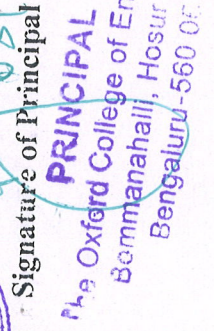 Signature of Principal
PRINCIPAL
The Oxford College of En
Bommanahalli, Hosur
Bengaluru-560 0